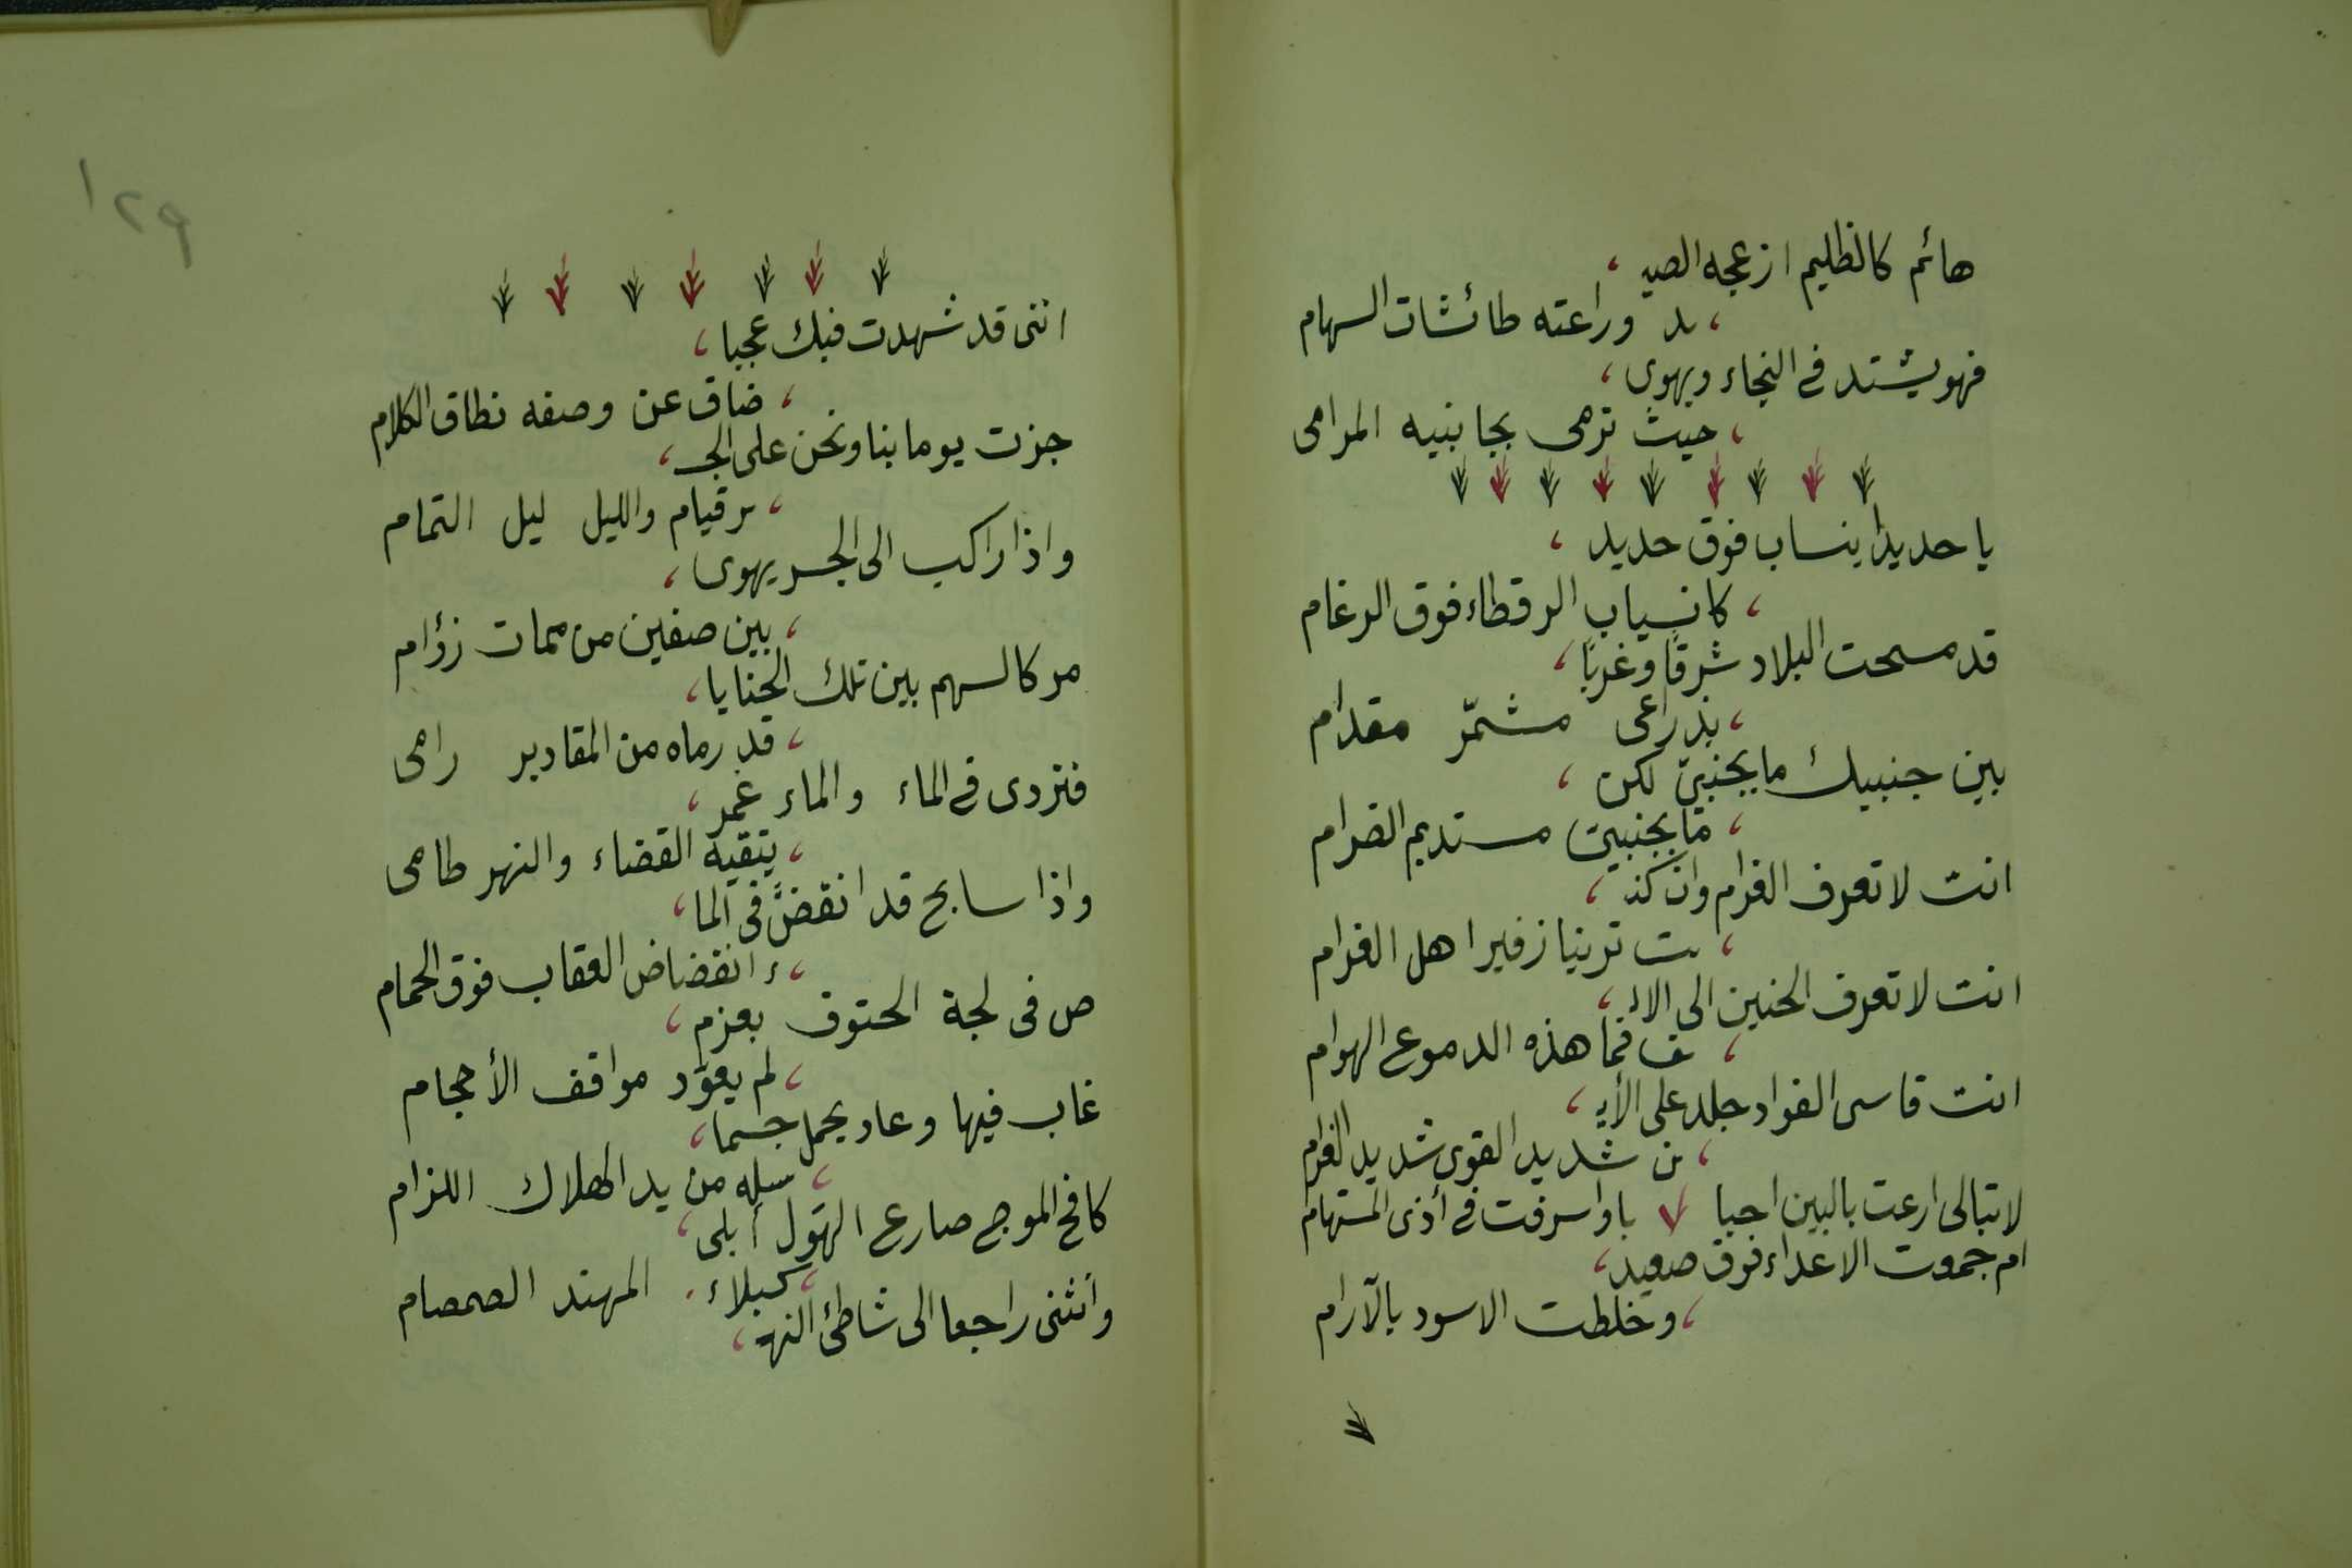 هائم كالظليم ازعجه الصيـ
ـد وراعته طائشات السهام
فهو يشتد في النجاء ويهوى
حيث ترمى بجانبيه المرامى
يا حديدا ينساب فوق حديد
كانسياب الرقطاء فوق الرغام
قد مسحت البلاد شرقًا وغربًا
بذراعى مشمّر مقدام
بين جنبيك ما بجنبىّ لكن
ما بجنبىّ مستديم الضرام
انت لا تعرف الغرام وان كنـ
ـت ترينا زفير اهل الغرام
انت لا تعرف الحنين الى الالـ
ـف فما هذه الدموع الهوام
انت قاسى الفواد جلد على الأيـ
ـن شديد القوى شديد الغرام
لا تبالى ارعت بالبين احبا با واسرفت في أذى المستهام
ام جمعت الاعداء فوق صعيد
وخلطت الاسود بالآرام
١٢٩
اننى قد شهدت فيك عجيبا
ضاق عن وصفه نطاق الكلام
جزت يوما بنا ونحن على الجـ
ـسر قيام والليل ليل التمام
واذا راكب الى الجسر يهوى
بين صفين من ممات زؤام
مر كالسهم بين تلك الحنايا
قد رماه من المقادير رامى
فتردى في الماء والماء غمر
يتقيه القضاء والنهر طامى
واذا سابح قد انقضّ فى الما
ء انقضاض العقاب فوق الحمام
ص فى لجة الحتوف بعزم
لم يعوّد مواقف الأحجام
غاب فيها وعاد يحمل جسما
سله من يد الهلاك اللزام
كافح الموج صارع الهول أبلى
كبلاء المهند الصمصام
وانثنى راجعا الى شاطئ النهـ